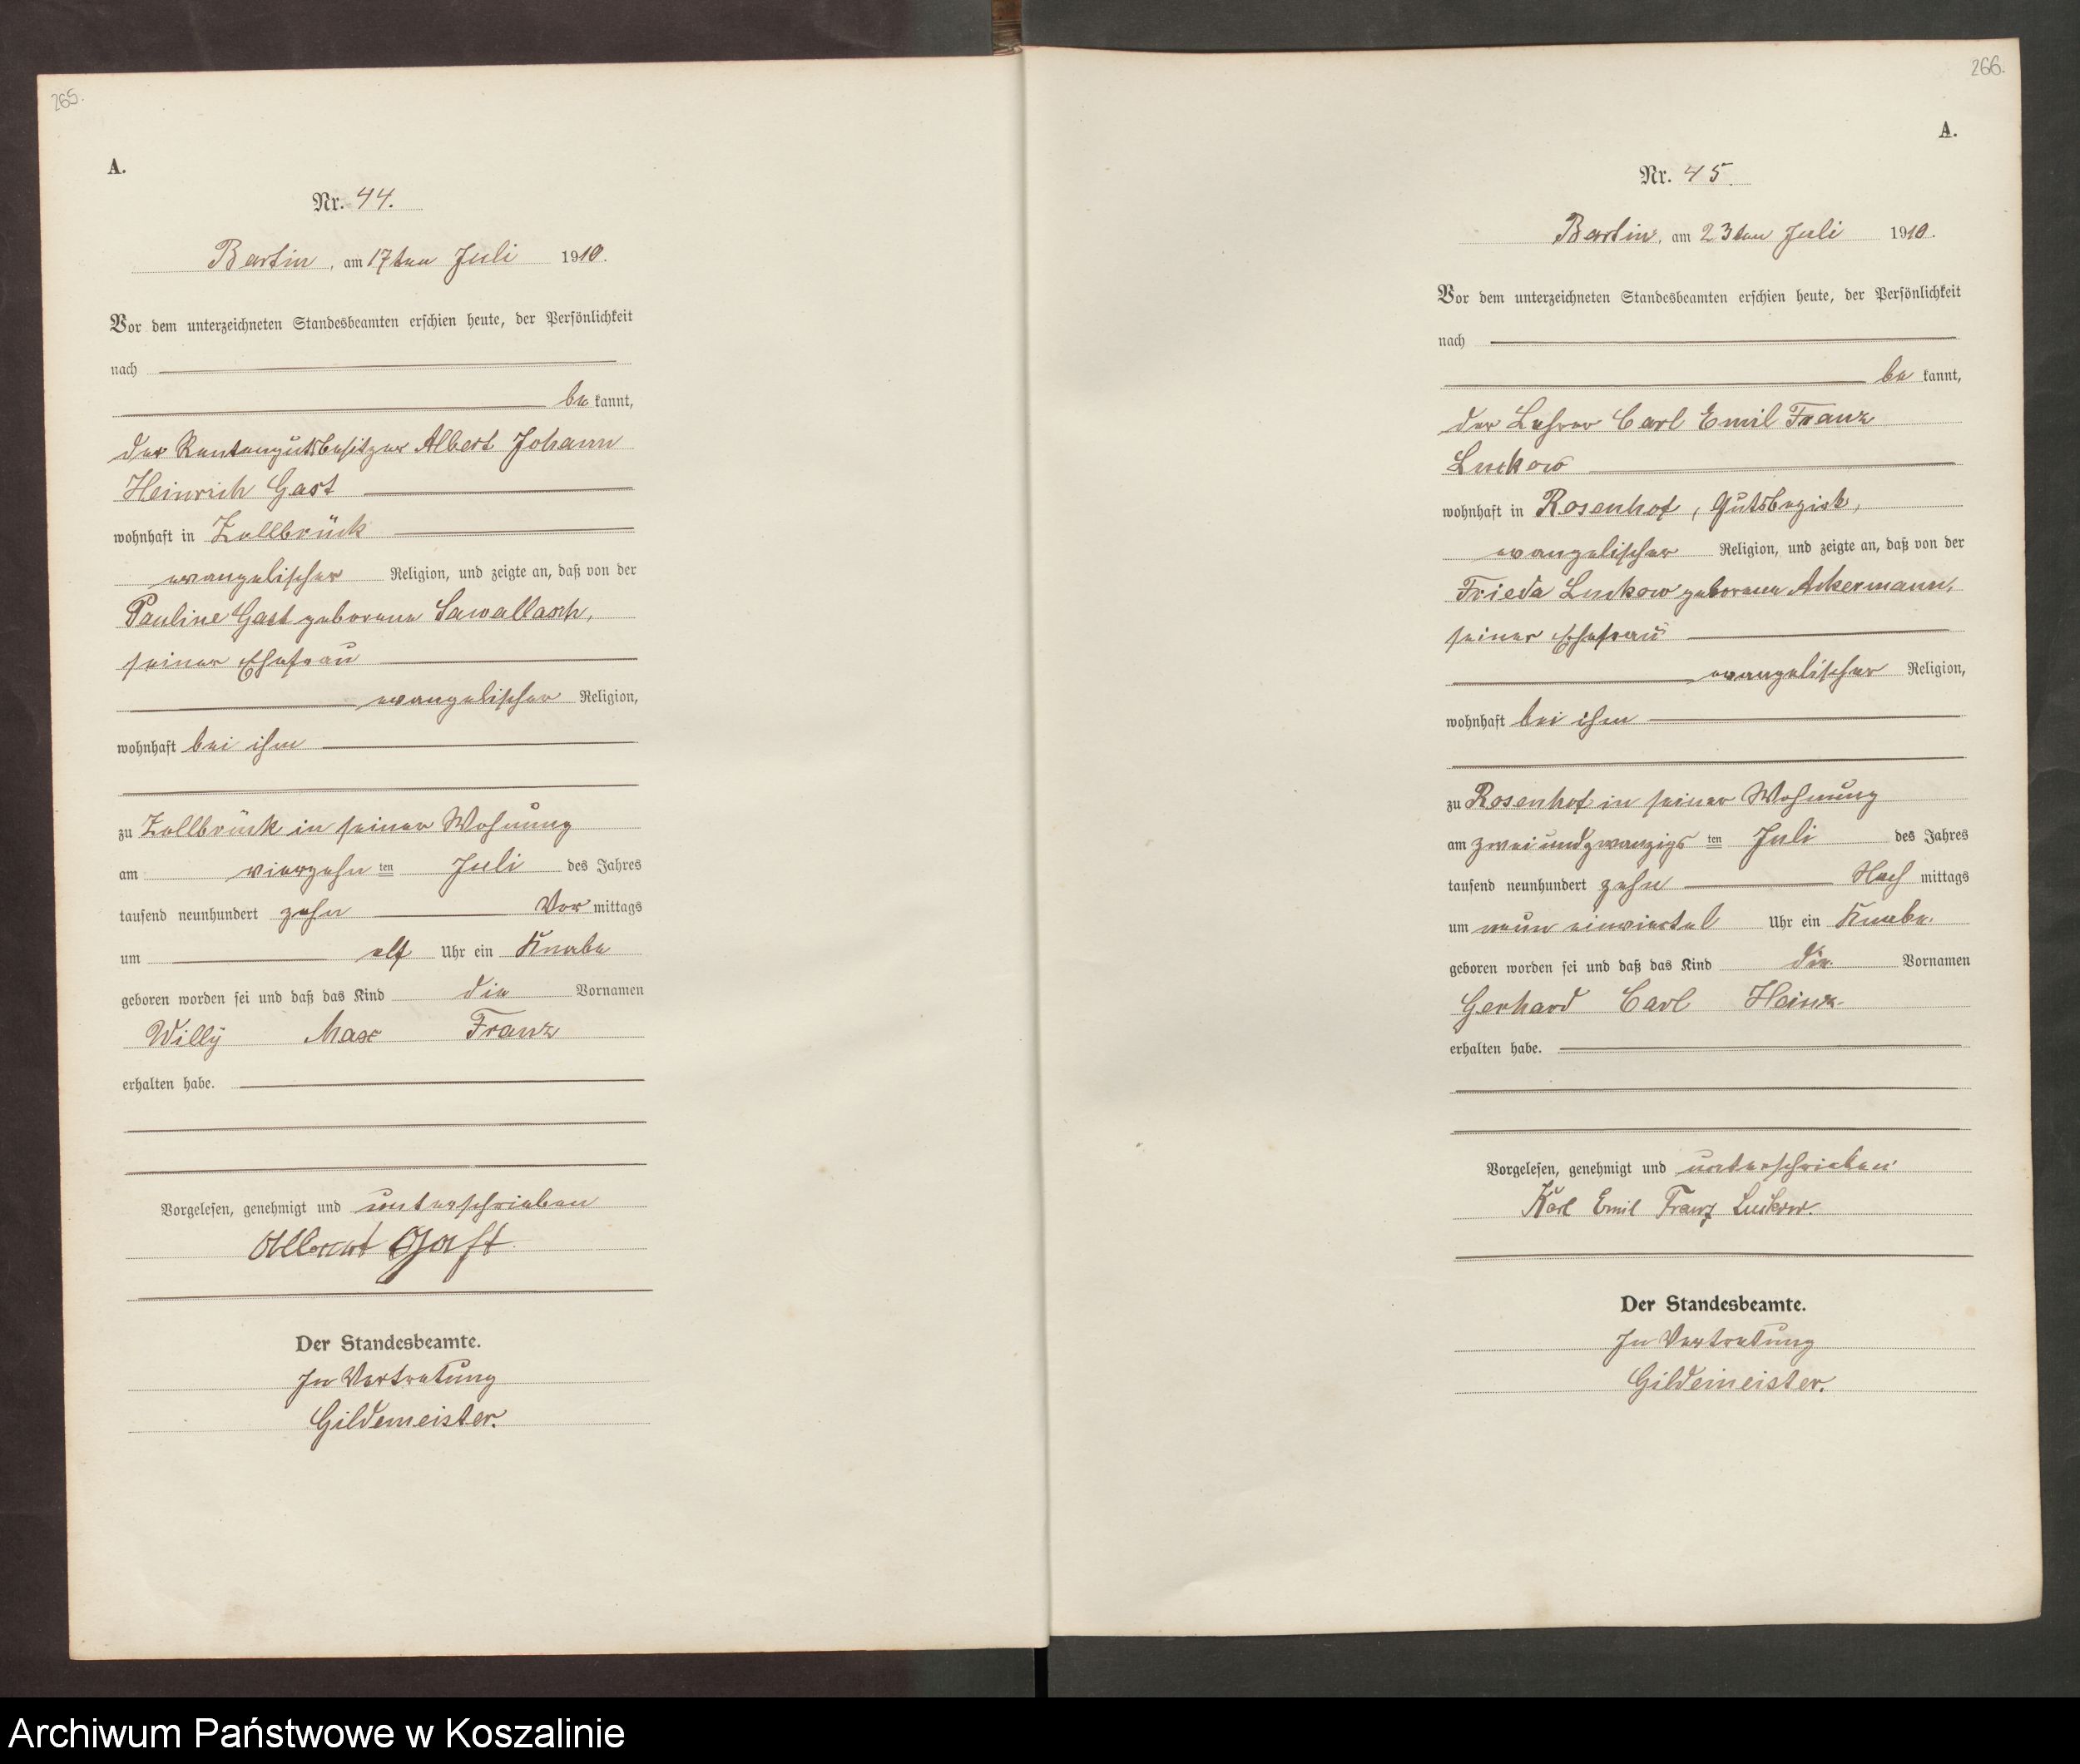 265.
A.
Nr. 44.
Bartin, am 17ten Juli 1910.
Vor dem unterzeichneten Standesbeamten erschien heute, der Persönlichkeit
nach
be kannt,
der Rentengutsbesitzer Albert Johann
Heinrich Gast
wohnhaft in Zollbrück
evangelischer Religion, und zeigte an, daß von der
Pauline Gast geborene Sawallasch,
seiner Ehefrau
evangelischer Religion,
wohnhaft bei ihm
zu Zollbrück in seiner Wohnung
am vierzehn ten Juli des Jahres
tausend neunhundert zehn Vor mittags
um elf Uhr ein Knabe
geboren worden sei und daß das Kind die Vornamen
Willy Max Franz
erhalten habe.
Vorgelesen, genehmigt und unterschrieben
Albert Gast
Der Standesbeamte.
In Vertretung
Gildemeister.
266.
A.
Nr. 45.
Bartin, am 23ten Juli 1910.
Vor dem unterzeichneten Standesbeamten erschien heute, der Persönlichkeit
nach
be kannt,
der Lehrer Carl Emil Franz
Luckow
wohnhaft in Rosenhof, Gutsbezirk,
evangelischer Religion, und zeigte an, daß von der
Frieda Luckow geborene Ackermann,
seiner Ehefrau
evangelischer Religion,
wohnhaft bei ihm
zu Rosenhof in seiner Wohnung
am zweiundzwanzigs ten Juli des Jahres
tausend neunhundert zehn Nach mittags
um neun einviertel Uhr ein Knabe
geboren worden sei und daß das Kind die Vornamen
Gerhard Carl Heinz
erhalten habe.
Vorgelesen, genehmigt und unterschrieben
Karl Emil Franz Luckow.
Der Standesbeamte.
In Vertretung
Gildemeister.
Archiwum Państwowe w Koszalinie